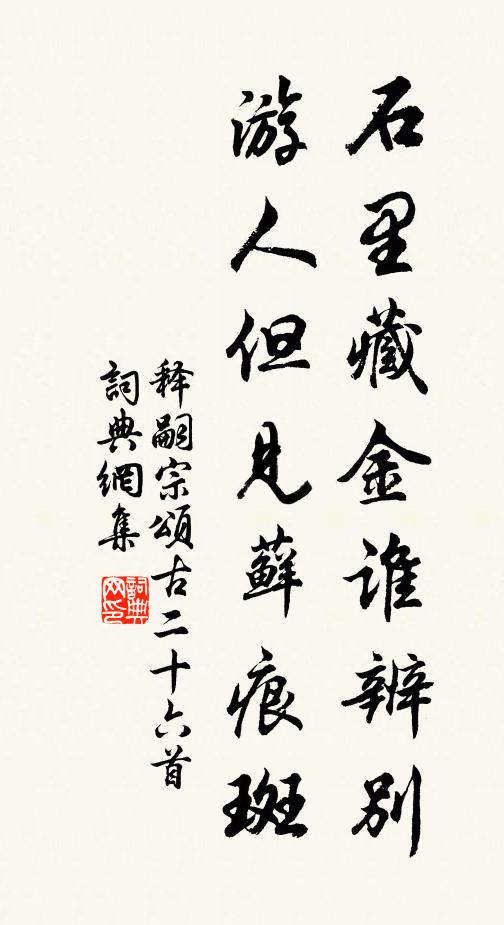 石里藏金谁辨别
游人但见藓痕斑
释嗣宗颂古二十六首
詞典網集
詞典網印